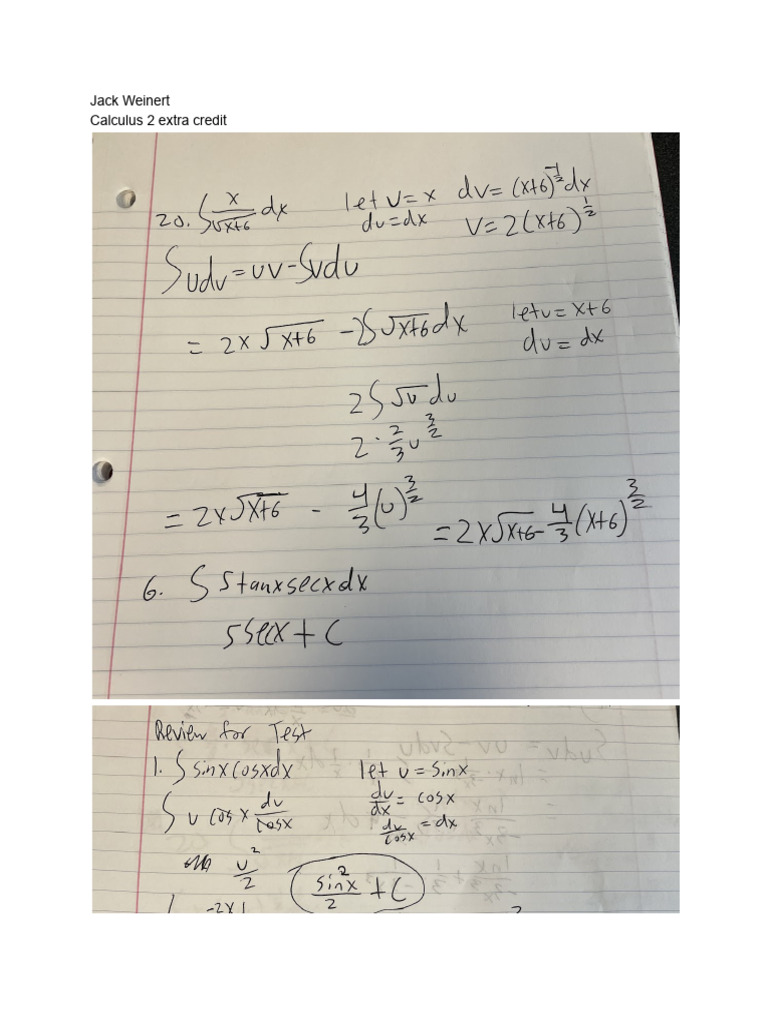 Jack Weinert
Calculus 2 extra credit
20. ∫ x/√x+6 dx let u = x dv = (x+6)^-1/2 dx
du = dx v = 2(x+6)^1/2
∫udv = uv - ∫vdu
= 2x√x+6 - 2∫√x+6 dx let u = x+6
du = dx
2∫√u du
2 · 2/3 u^3/2
= 2x√x+6 - 4/3 (u)^3/2 = 2x√x+6 - 4/3 (x+6)^3/2
6. ∫ 5tanxsecxdx
5secx + C
Review for Test
1. ∫ sinx cosxdx let u = sinx
∫ u cosx du/cosx du/dx = cosx
du/cosx = dx
u²/2 sinx²/2 + C
-2x